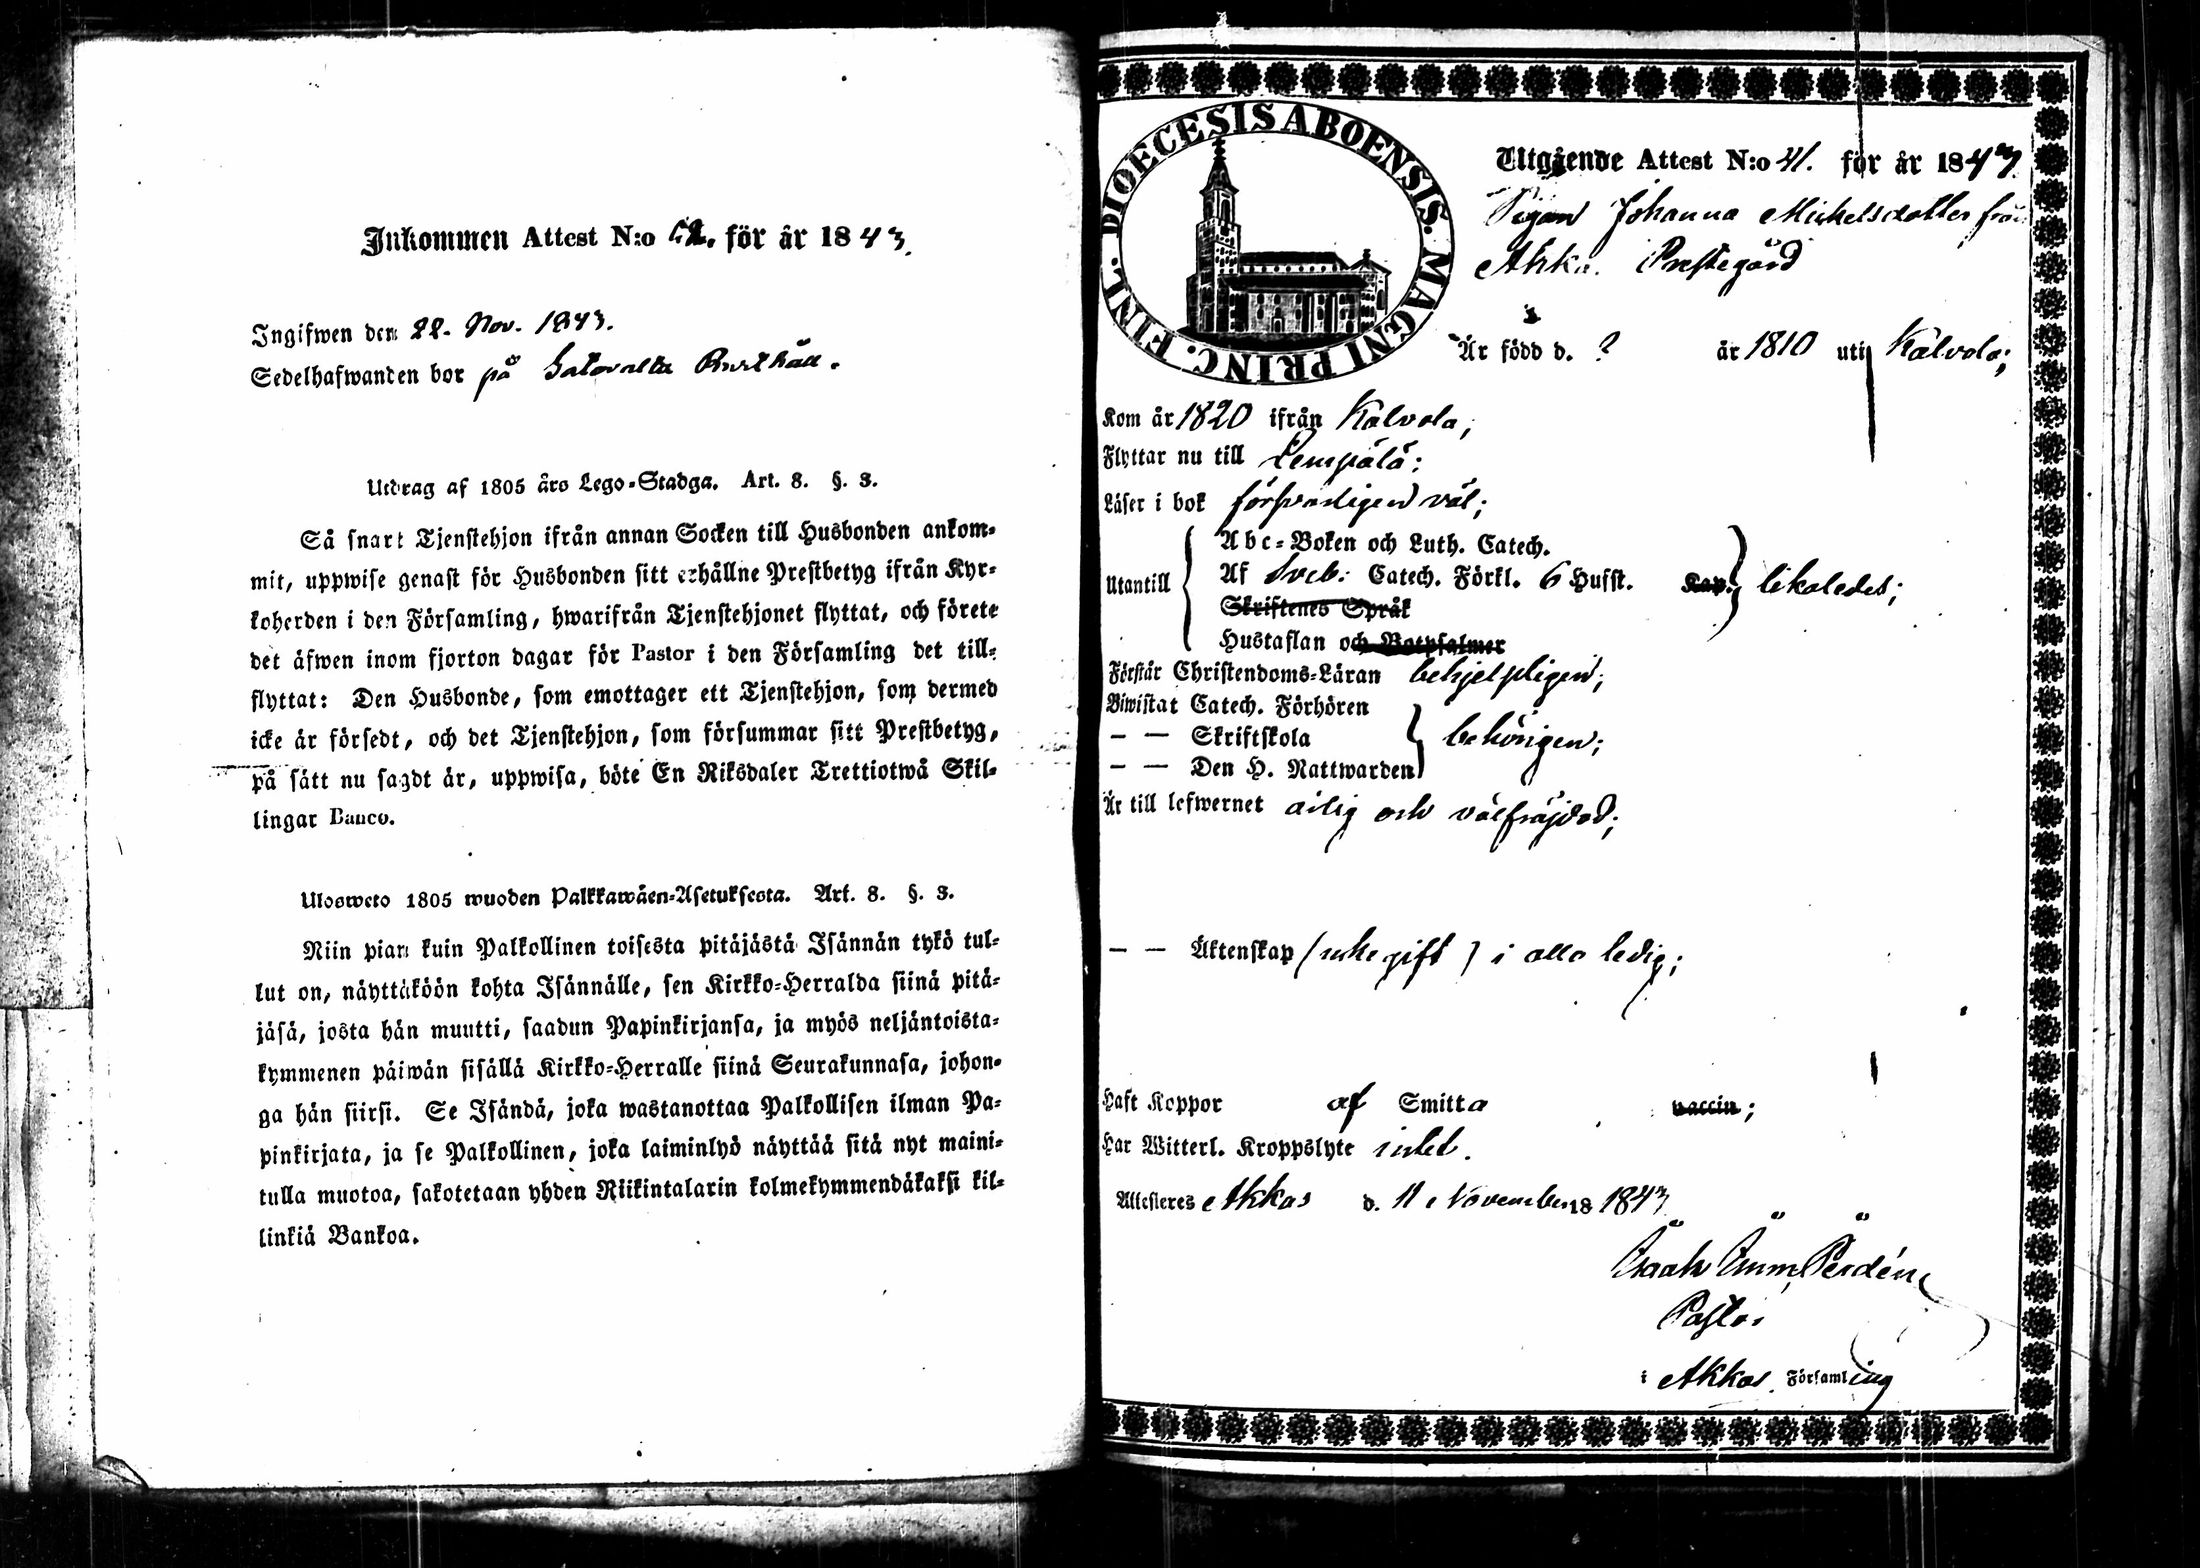 Inkommen Attest N:o 52. för år 1843.
Ingifwen den 22. Nov. 1843.
Sedelhafwanden bor på
Utdrag af 1805 års Lego-Stadga. Art. 8. §. 3.
Så snart Tjenstehjon ifrån annan Socken till Husbonden ankom-
mit, uppwise genast för Husbonden sitt erhållne Prestbetyg ifrån Kyr-
koherden i den Församling, hwarifrån Tjenstehjonet flyttat, och förete
det äfwen inom fjorton dagar för Pastor i den Församling det till-
flyttat: Den Husbonde, som emottager ett Tjenstehjon, som dermed
icke är försedt, och det Tjenstehjon, som försummar sitt Prestbetyg,
på sätt nu sagdt är, uppwisa, böte En Riksdaler Trettiotwå Skil-
lingar Banco.
Ulosweto 1805 wuoden Palkkawäen-Asetuksesta. Art. 8. §. 3.
Niin pian kuin Palkollinen toisesta pitäjästä Isännän tykö tul-
lut on, näyttäköön kohta Isännälle, sen Kirkko-Herralda siinä pitä-
jäsä, josta hän muutti, saadun Papinkirjansa, ja myös neljäntoista-
kymmenen päiwän sisällä Kirkko-Herralle siinä Seurakunnasa, johon-
ga hän siirsi. Se Isändä, joka wastanottaa Palkollisen ilman Pa-
pinkirjata, ja se Palkollinen, joka laiminlyö näyttää sitä nyt maini-
tulla muotoa, sakotetaan yhden Riikintalarin kolmekymmendäkaksi kil-
linkiä Bankoa.
DIOECESIS ABOENSIS. MAGNI PRINC. FINL.
Utgående Attest N:o 41. för år 1843.
Pigan Johanna Michelsdotter från
Akka Prestegård
Är född d. ? år 1810 uti Kalvola;
Kom år 1820 ifrån Kalvola;
Flyttar nu till Lempälä;
Läser i bok försvarligen väl;
Utantill
Abc-Boken och Luth. Catech.
Af Sveb: Catech. Förkl. 6 Husst. Kap. likaledes;
Skriftenes Språk
Hustaflan och Botpsalmer
Förstår Christendoms-Läran behjelpligen;
Biwistat Catech. Förhören
— — Skriftskola behörigen;
— — Den H. Nattwarden
Är till lefwernet ärlig och välfräjdad;
— — Äktenskap (icke gift) i allo ledig;
Haft Koppor af Smitta vaccin;
Har Witterl. Kroppslyte intet.
Attesteres Akkas d. 11 November 18 1843
Isaak Emm. Perdén
Pastor
i Akkas Församling